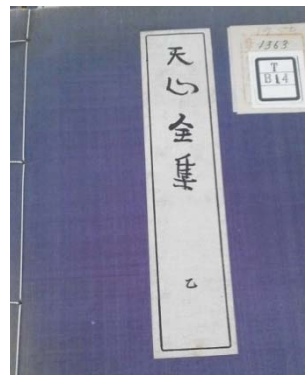 天心全集
乙
1363
T
B14